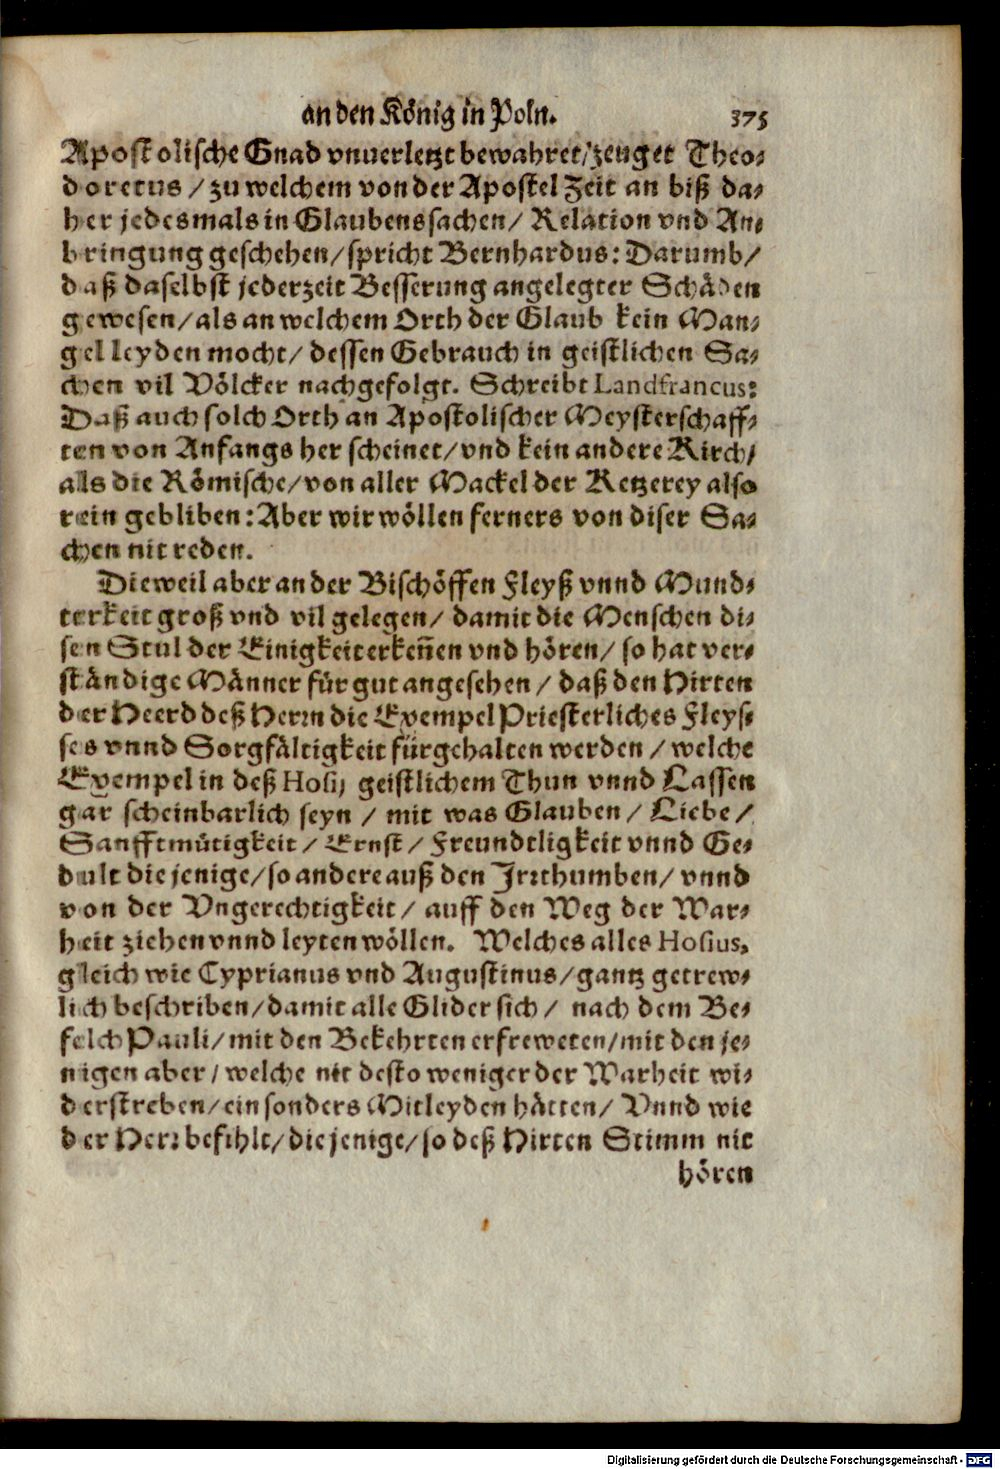 an den König in Poln. 375
Apostolische Gnad vnuerletzt bewahret/zeuget Theo-
doretus/zu welchem von der Apostel Zeit an biß da-
her jedesmals in Glaubenssachen/ Relation vnd An-
bringung geschehen/spricht Bernhardus: Darumb/
daß daselbst jederzeit Besserung angelegter Schäden
gewesen/als an welchem Orth der Glaub kein Man-
gel leyden mocht/ dessen Gebrauch in geistlichen Sa-
chen vil Völcker nachgefolgt. Schreibt Landfrancus:
Daß auch solch Orth an Apostolischer Meysterschaff-
ten von Anfangs her scheinet/vnd kein andere Kirch/
als die Römische/von aller Mackel der Ketzerey also
rein gebliben: Aber wir wöllen ferners von diser Sa-
chen nit reden.
Dieweil aber an der Bischöffen Fleyß vnnd Mund-
terkeit groß vnd vil gelegen/ damit die Menschen di-
sen Stul der Einigkeit erkeñen vnd hören/ so hat ver-
ständige Männer für gut angesehen/ daß den Hirten
der Heerd deß Herrn die Exempel Priesterliches Fleys-
ses vnnd Sorgfältigkeit fürgehalten werden/welche
Exempel in deß Hosij geistlichem Thun vnnd Lassen
gar scheinbarlich seyn/ mit was Glauben/ Liebe/
Sanfftmütigkeit/ Ernst/ Freundtligkeit vnnd Ge-
dult die jenige/so andere auß den Irrthumben/ vnnd
von der Vngerechtigkeit/ auff den Weg der War-
heit ziehen vnnd leyten wöllen. Welches alles Hosius,
gleich wie Cyprianus vnd Augustinus/gantz getrew-
lich beschriben/damit alle Glider sich/ nach dem Be-
felch Pauli/mit den Bekehrten erfreweten/mit den je-
nigen aber/welche nit desto weniger der Warheit wi-
derstreben/ein sonders Mitleyden hätten/ Vnnd wie
der Herr befihlt/die jenige/so deß Hirten Stimm nit
hören
Digitalisierung gefördert durch die Deutsche Forschungsgemeinschaft - DFG